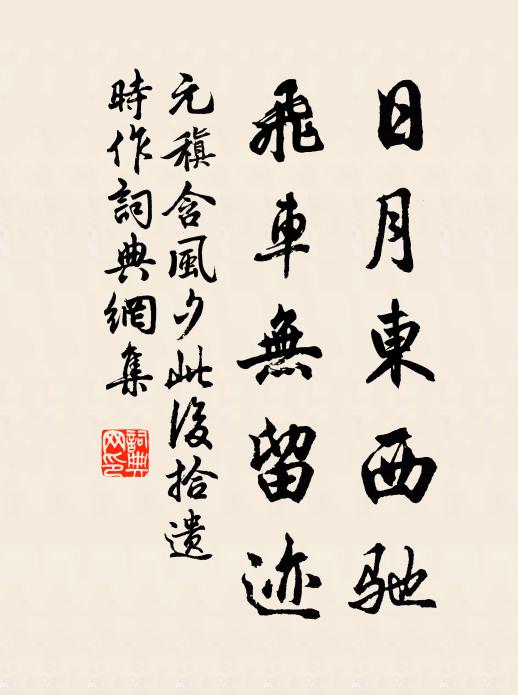 日月東西馳
飛車無留迹
元稹含風夕此後拾遺
時作詞典網集
詞典網印